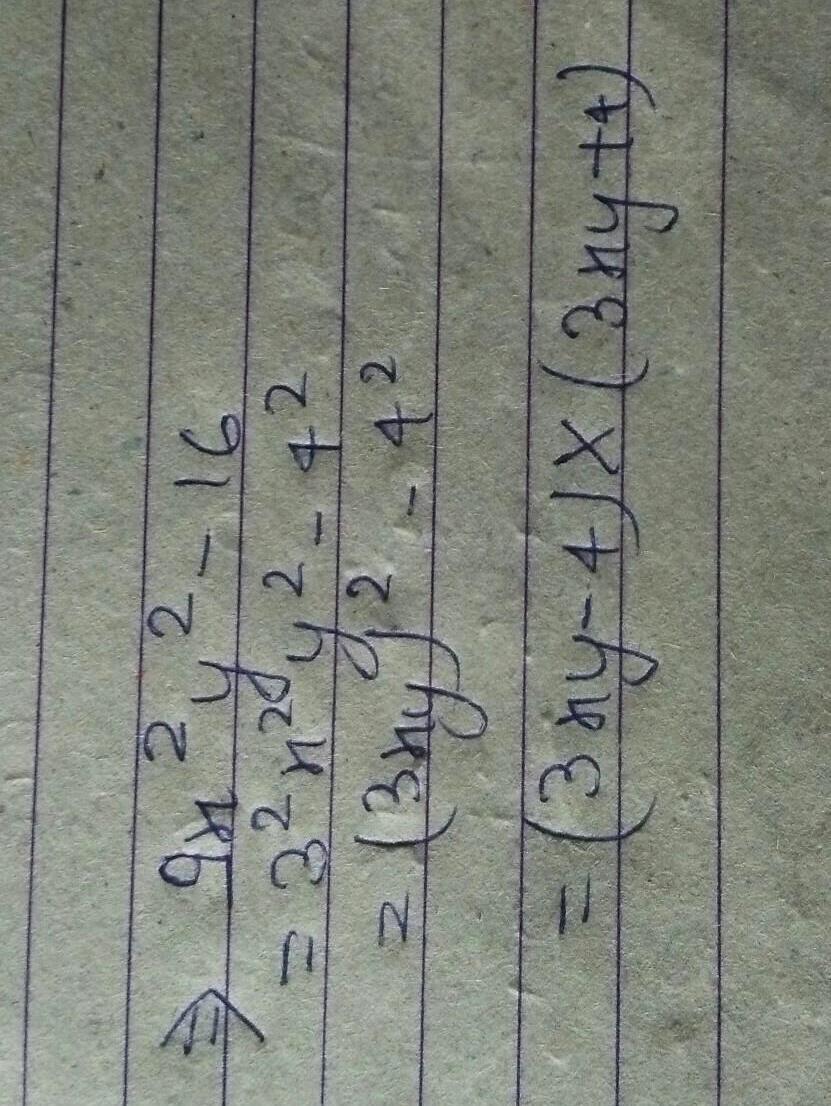 ⇒ 9x²y² - 16
= 3²x²y² - 4²
= (3xy)² - 4²
= (3xy - 4) × (3xy + 4)